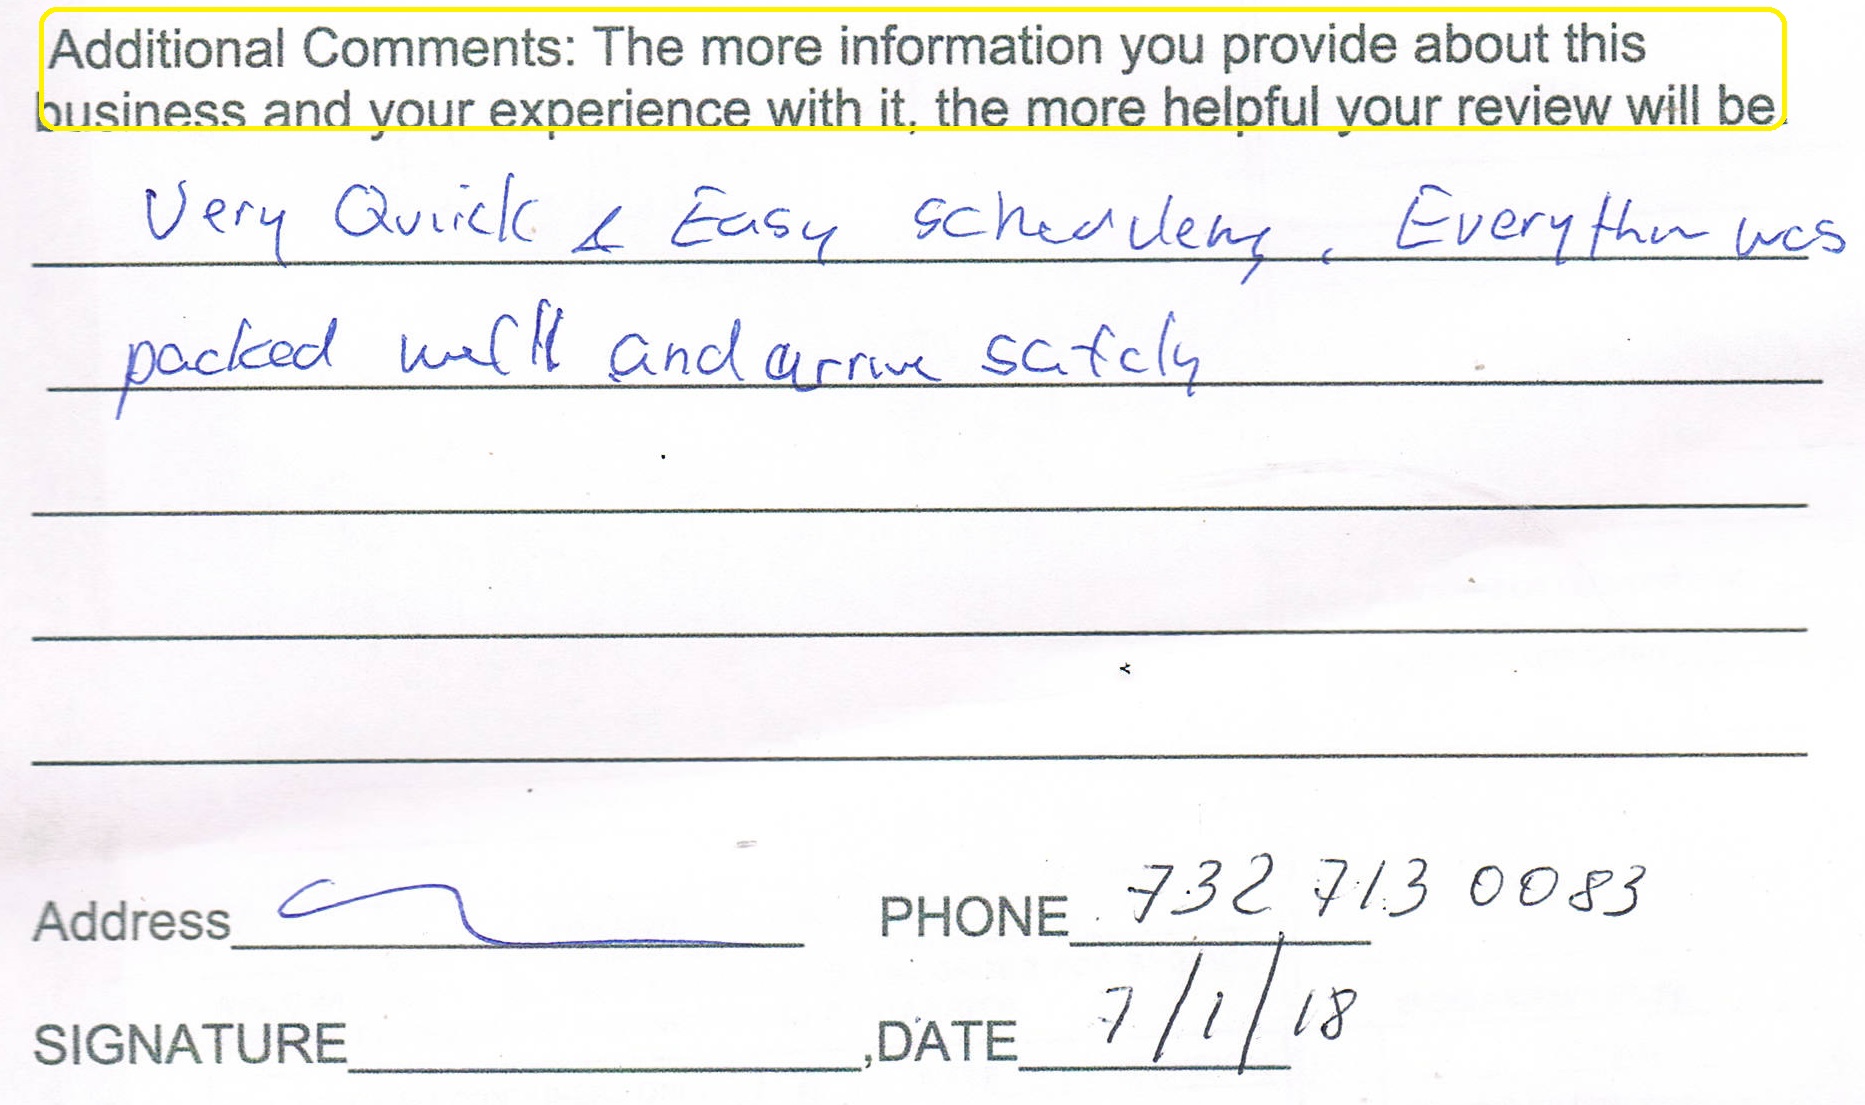 Additional Comments: The more information you provide about this
business and your experience with it, the more helpful your review will be.
Very Quick & Easy scheduleng. Everythin was
packed well and arrive safely
Address PHONE 732 713 0083
SIGNATURE ,DATE 7/1/18